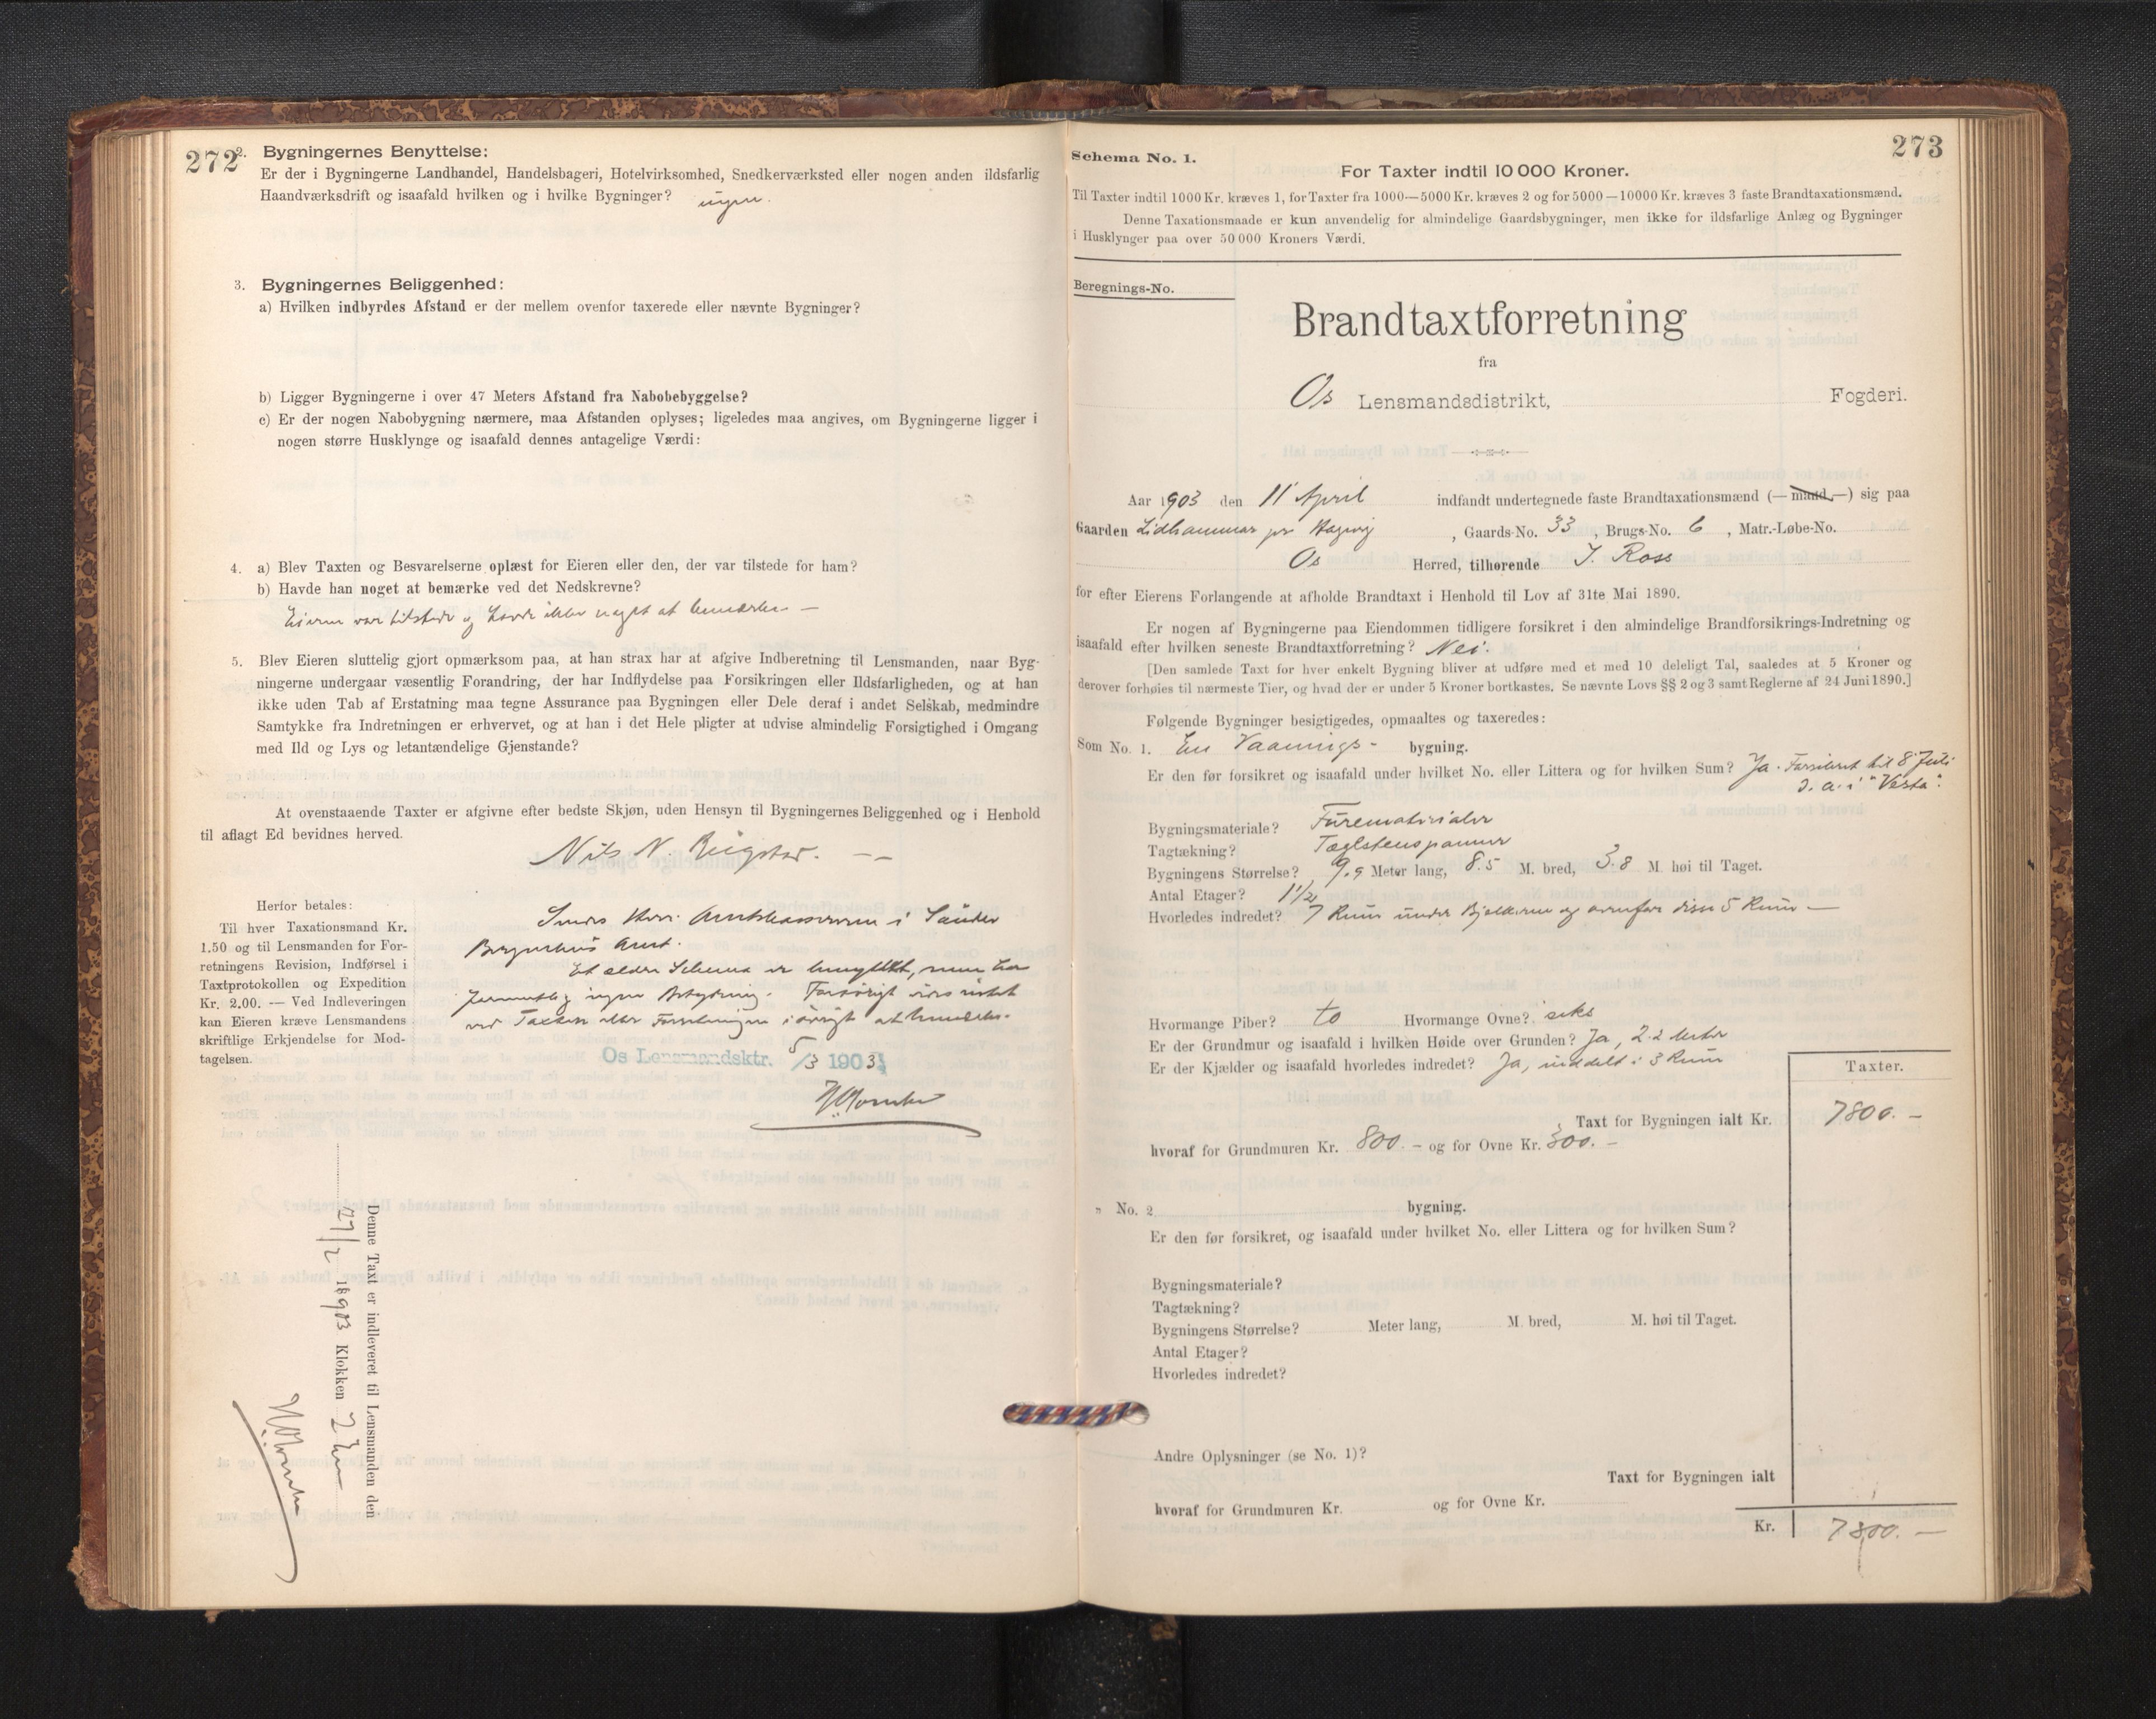 272
2. Bygningernes Benyttelse:
Er der i Bygningerne Landhandel, Handelsbageri, Hotelvirksomhed, Snedkerværksted eller nogen anden ildsfarlig
Haandværksdrift og isaafald hvilken og i hvilke Bygninger? ingen.
3. Bygningernes Beliggenhed:
a) Hvilken indbyrdes Afstand er der mellem ovenfor taxerede eller nævnte Bygninger?
b) Ligger Bygningerne i over 47 Meters Afstand fra Nabobebyggelse?
c) Er der nogen Nabobygning nærmere, maa Afstanden oplyses; ligeledes maa angives, om Bygningerne ligger i
nogen større Husklynge og isaafald dennes antagelige Værdi:
4. a) Blev Taxten og Besvarelserne oplæst for Eieren eller den, der var tilstede for ham?
b) Havde han noget at bemærke ved det Nedskrevne?
Eieren var tilstede og havde ikke noget at bemærke —
5. Blev Eieren sluttelig gjort opmærksom paa, at han strax har at afgive Indberetning til Lensmanden, naar Byg-
ningerne undergaar væsentlig Forandring, der har Indflydelse paa Forsikringen eller Ildsfarligheden, og at han
ikke uden Tab af Erstatning maa tegne Assurance paa Bygningen eller Dele deraf i andet Selskab, medmindre
Samtykke fra Indretningen er erhvervet, og at han i det Hele pligter at udvise almindelig Forsigtighed i Omgang
med Ild og Lys og letantændelige Gjenstande?
At ovenstaaende Taxter er afgivne efter bedste Skjøn, uden Hensyn til Bygningernes Beliggenhed og i Henhold
til aflagt Ed bevidnes herved.
Nils N. — —
Herfor betales:
Til hver Taxationsmand Kr.
1.50 og til Lensmanden for For-
retningens Revision, Indførsel i
Taxtprotokollen og Expedition
Kr. 2.00. — Ved Indleveringen
kan Eieren kræve Lensmandens
skriftlige Erkjendelse for Mod-
tagelsen.
Sendes Herr Amtskassereren i Søndre
Bergenhus Amt.
Et ældre Schema er benyttet, men har
formentlig ingen Betydning. Forøvrigt vides intet
ved Taxten eller Forretningen iøvrigt at bemærke.
Os Lensmandsktr. 5/3 1903
Denne Taxt er indleveret til Lensmanden den
27/2 1903 Klokken 2
273
Schema No. 1.
For Taxter indtil 10 000 Kroner.
Til Taxter indtil 1000 Kr. kræves 1, for Taxter fra 1000—5000 Kr. kræves 2 og for 5000—10000 Kr. kræves 3 faste Brandtaxationsmænd.
Denne Taxationsmaade er kun anvendelig for almindelige Gaardsbygninger, men ikke for ildsfarlige Anlæg og Bygninger
i Husklynger paa over 50 000 Kroners Værdi.
Beregnings-No.
Brandtaxtforretning
fra
Os Lensmandsdistrikt, Fogderi.
Aar 1903 den 11' April indfandt undertegnede faste Brandtaxationsmænd (— mand —) sig paa
Gaarden Lidhammar pr Hagvig, Gaards-No. 33, Brugs-No. 6, Matr.-Løbe-No.
Os Herred, tilhørende J. Ross
for efter Eierens Forlangende at afholde Brandtaxt i Henhold til Lov af 31te Mai 1890.
Er nogen af Bygningerne paa Eiendommen tidligere forsikret i den almindelige Brandforsikrings-Indretning og
isaafald efter hvilken seneste Brandtaxtforretning? Nei.
[Den samlede Taxt for hver enkelt Bygning bliver at udføre med et med 10 deleligt Tal, saaledes at 5 Kroner og
derover forhøies til nærmeste Tier, og hvad der er under 5 Kroner bortkastes. Se nævnte Lovs §§ 2 og 3 samt Reglerne af 24 Juni 1890.]
Følgende Bygninger besigtigedes, opmaaltes og taxeredes:
Som No. 1. En Vaanings- bygning.
Er den før forsikret og isaafald under hvilket No. eller Littera og for hvilken Sum? Ja. Forsikret til 8 Juli
d. a. i "Vesta".
Bygningsmateriale? Furematerialer
Tagtækning? Teglstenspanner
Bygningens Størrelse? 9.9 Meter lang, 8.5 M. bred, 3.8 M. høi til Taget.
Antal Etager? 1 1/2
Hvorledes indredet? 7 Rum under Bjelkerne og ovenfor disse 5 Rum —
Hvormange Piber? to Hvormange Ovne? seks
Er der Grundmur og isaafald i hvilken Høide over Grunden? Ja, 2.2 Meter
Er der Kjælder og isaafald hvorledes indredet? Ja, inddelt i 3 Rum
Taxter.
Taxt for Bygningen ialt Kr. 7800. —
hvoraf for Grundmuren Kr. 800. — og for Ovne Kr. 300. —
" No. 2 bygning.
Er den før forsikret, og isaafald under hvilket No. eller Littera og for hvilken Sum?
Bygningsmateriale?
Tagtækning?
Bygningens Størrelse? Meter lang, M. bred, M. høi til Taget.
Antal Etager?
Hvorledes indredet?
Andre Oplysninger (se No. 1)?
Taxt for Bygningen ialt
hvoraf for Grundmuren Kr. og for Ovne Kr.
Kr. 7800. —